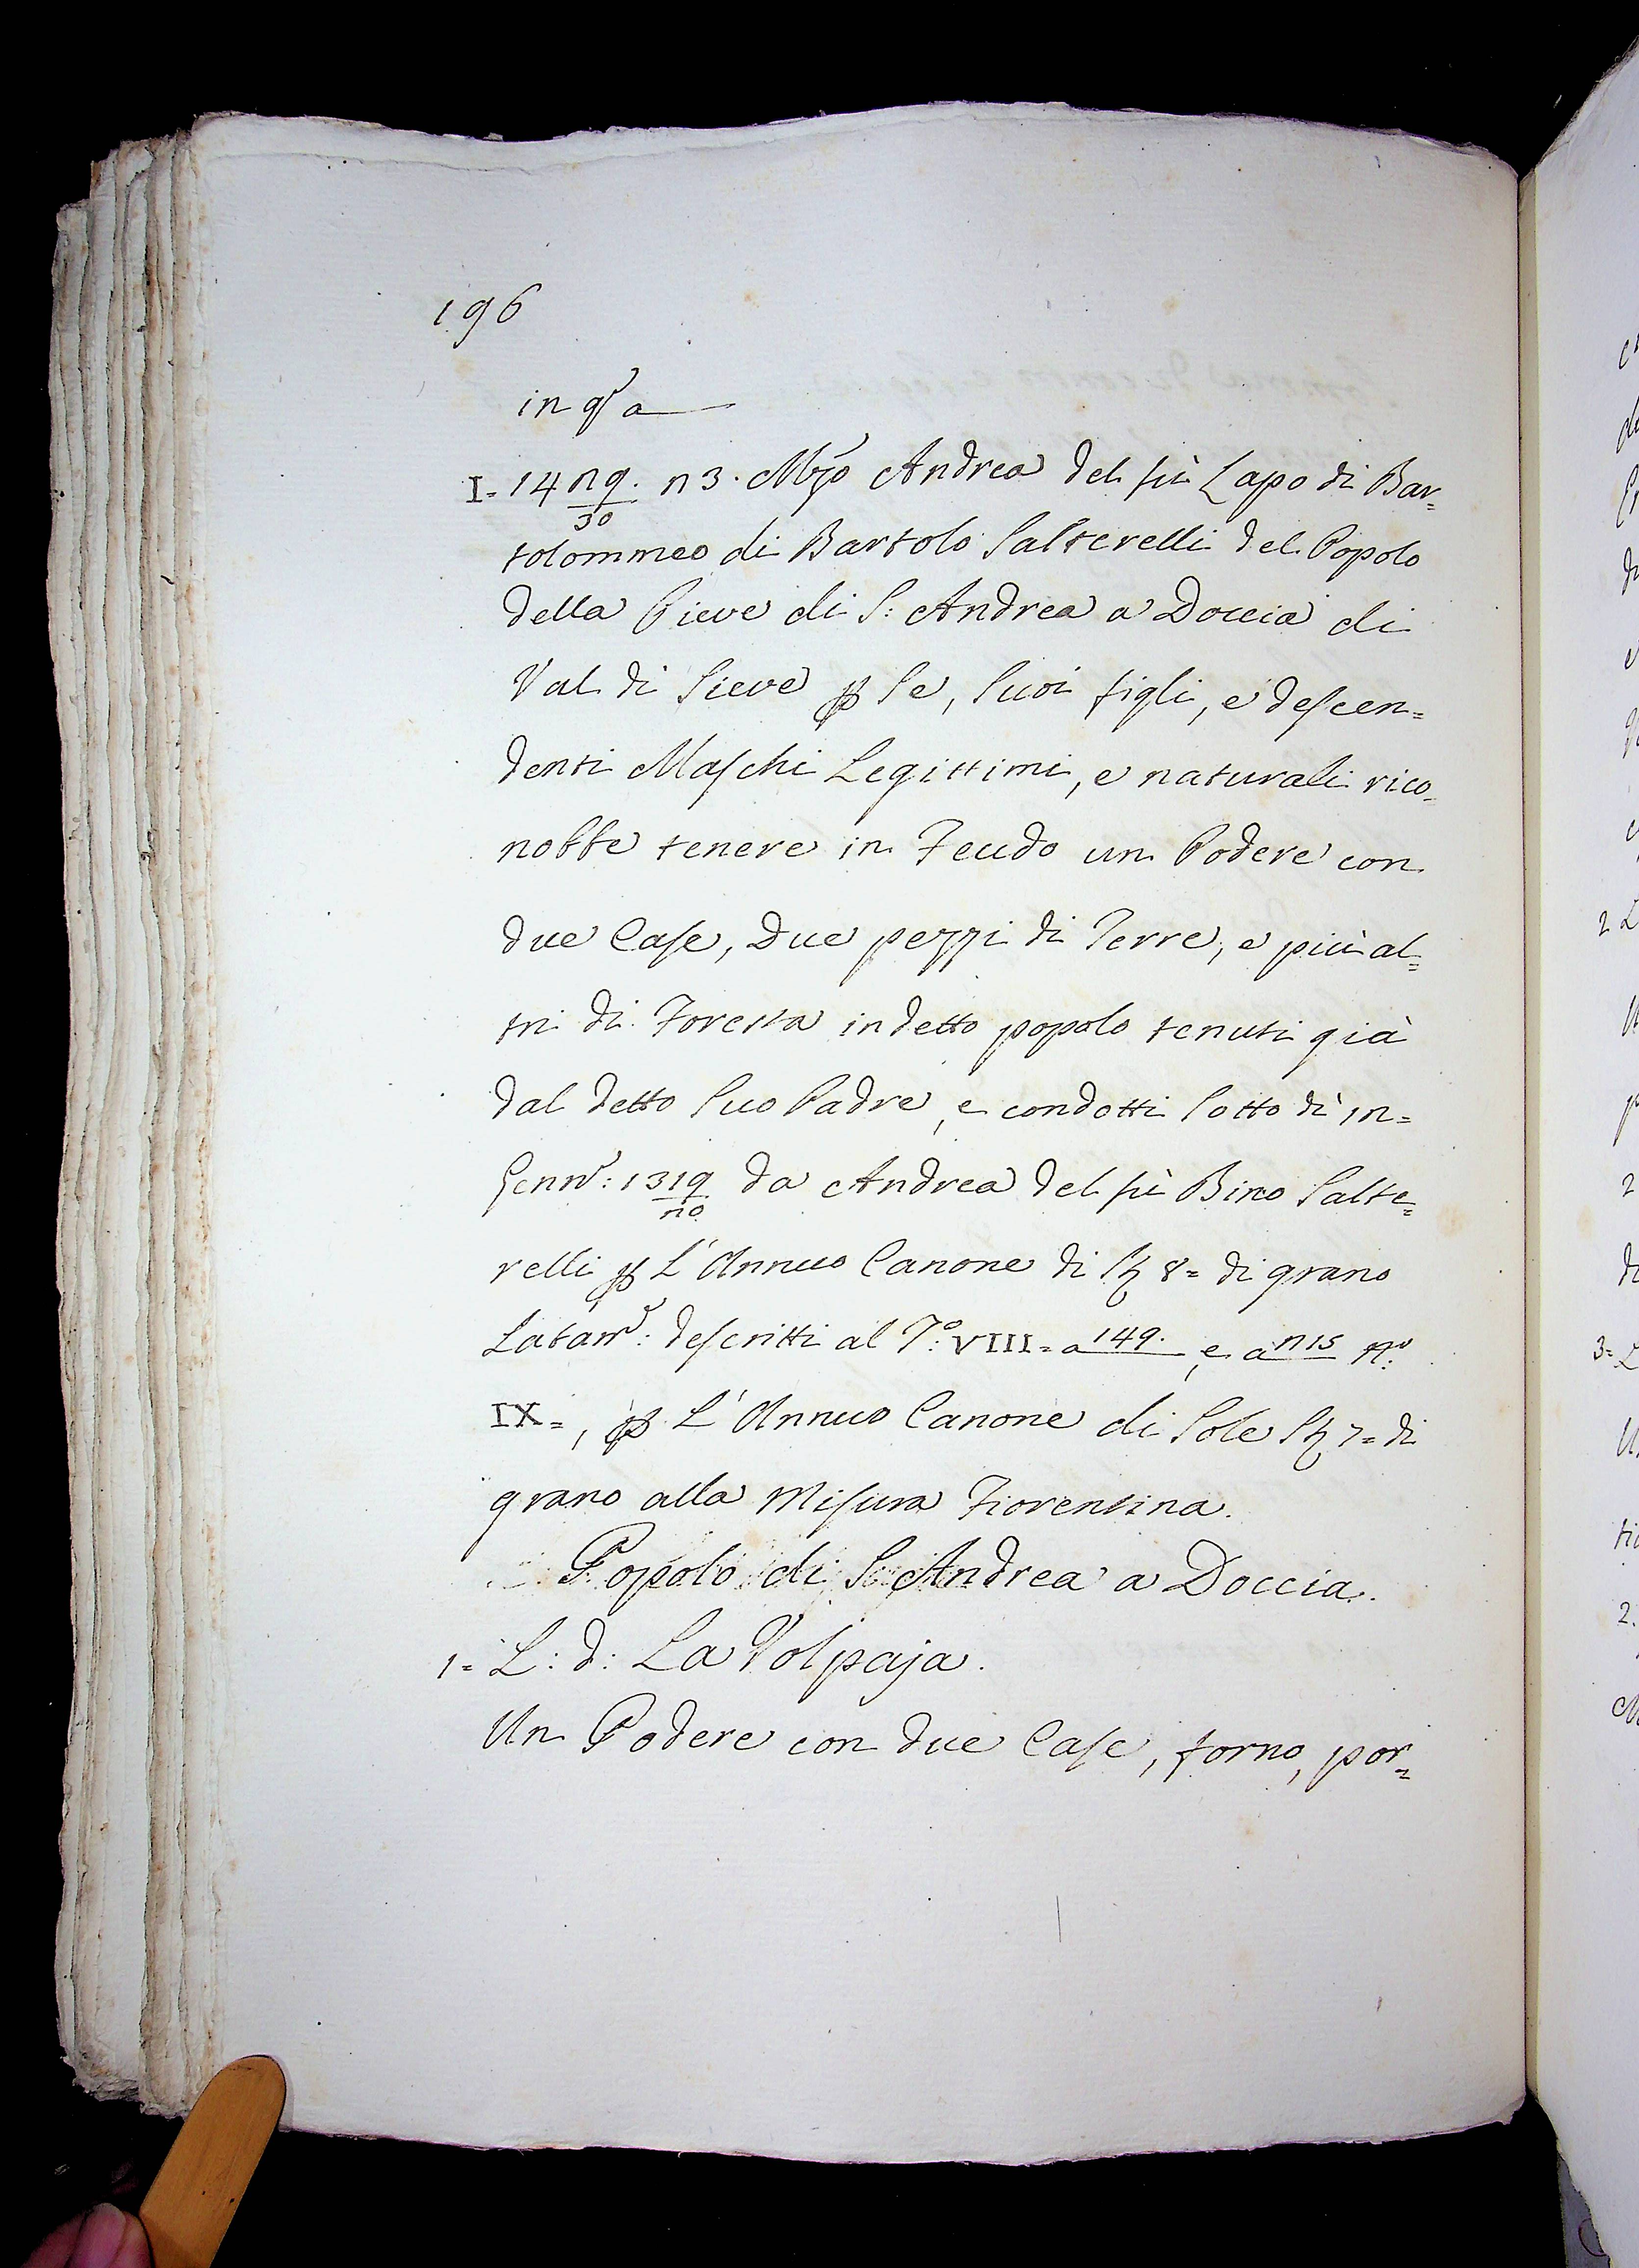 196
in qsa
I= 14 29/30. 23. Mgo Andrea del fù Lapo di Bar=
tolommeo di Bartolo Salterelli del Popolo
della Pieve di S: Andrea a Doccia di
Val di Sieve p Se, Suoi figli, e descen=
denti Maschi Legittimi, e naturali rico=
nobbe tenere in Feudo un Podere con
due Case, Due pezzi di Terre, e più al=
tri di Foresta in detto popolo tenuti già
dal detto Suo Padre, e condotti Sotto dì in=
Genn: 1319/20 da Andrea del fù Bino Salte=
relli p L'Annuo Canone di 8= di grano
descritti al T.o: VIII= a 149. e, a 215 No:
IX=, p L'Annuo Canone di Sole 7= di
grano alla Misura Fiorentina.
Popolo di S. Andrea a Doccia.
1= L: d: La Volpaja.
Un Podere con due Case, forno, por=